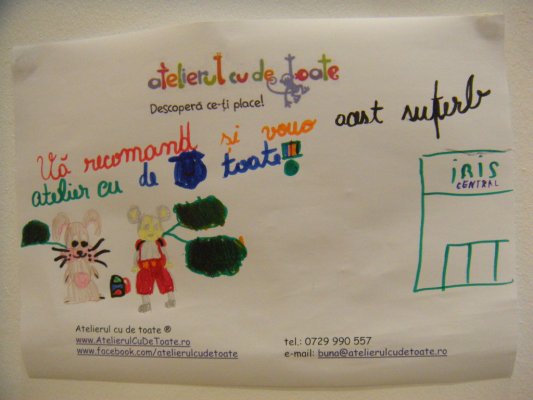 atelierul cu de toate
Descoperă ce-ți place!
Vă recomand și vouo acest superb
atelier cu de toate!
iRiS
CENTRAL
Atelierul cu de toate ®
www.AtelierulCuDeToate.ro
www.facebook.com/atelierulcudetoate
tel.: 0729 990 557
e-mail: buna@atelierulcudetoate.ro